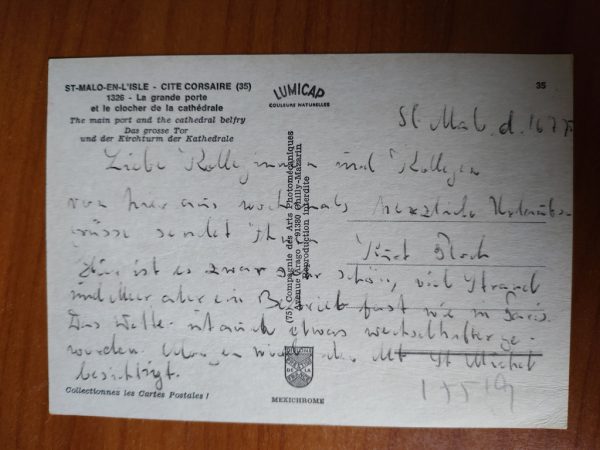 ST-MALO-EN-L'ISLE - CITE CORSAIRE (35)
1326 - La grande porte
et le clocher de la cathédrale
The main port and the cathedral belfry
Das grosse Tor
und der Kirchturm der Kathedrale
LUMICAP
COULEURS NATURELLES
35
St Malo, d. 16.7.
Liebe Kolleginnen und Kollegen
von hier aus nochmals herzliche Urlaubs-
grüsse sendet Ihnen
Hier ist es zwar sehr schön, viel Strand
und Meer aber ein Betrieb fast wie in Paris.
Das Wetter ist auch etwas wechselhafter ge-
worden. Morgen wird der Mt St Michel
besichtigt.
(75) Compagnie des Arts Photomécaniques
Avenue Arago - 91380 Chilly-Mazarin
Reproduction interdite
Collectionnez les Cartes Postales !
MEXICHROME